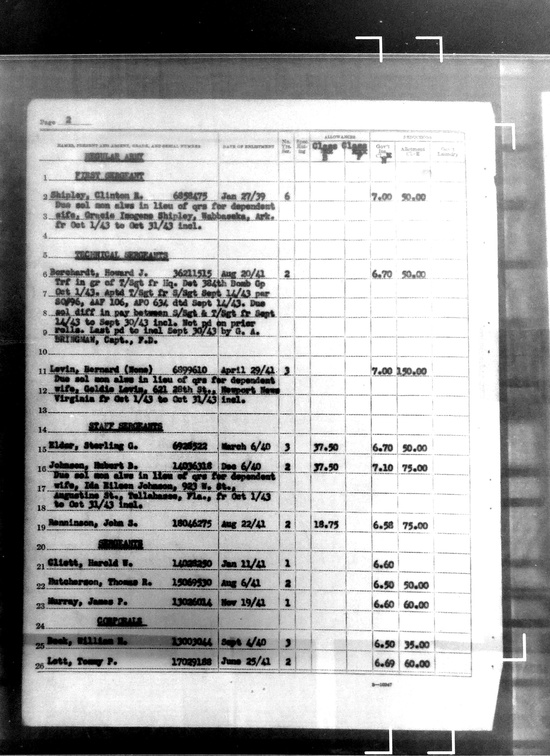 Page 2
NAMES, PRESENT AND ABSENT, GRADE, AND SERIAL NUMBER DATE OF ENLISTMENT No. Yrs. Ser. ALLOWANCES Class Class F
REGULAR ARMY
1 FIRST SERGEANT
2 Shipley, Clinton R. 6858475 Jan 27/39 6 7.00 50.00
Due sol mon alws in lieu of qrs for dependent
3 wife, Gracie Imogene Shipley, Wabbaseka, Ark.
fr Oct 1/43 to Oct 31/43 incl.
4
5 TECHNICAL SERGEANTS
6 Borchardt, Howard J. 36211515 Aug 20/41 2 6.70 50.00
Trf in gr of T/Sgt fr Hq. Det 384th Bomb Gp
7 Oct 1/43. Aptd T/Sgt fr S/Sgt Sept 14/43 per
SO#96, AAF 106, APO 634 dtd Sept 14/43. Due
8 sol diff in pay between S/Sgt & T/Sgt fr Sept
14/43 to Sept 30/43 incl. Not pd on prior
9 rolls. Last pd to incl Sept 30/43 by G. A.
BRINGMAN, Capt., F.D.
10
11 Levin, Bernard (None) 6899610 April 29/41 3 7.00 150.00
Due sol mon alws in lieu of qrs for dependent
12 wife, Goldie Levin, 621 28th St., Newport News
Virginia fr Oct 1/43 to Oct 31/43 incl.
13
14 STAFF SERGEANTS
15 Elder, Sterling G. 6928522 March 6/40 3 37.50 6.70 50.00
16 Johnson, Hubert B. 14036318 Dec 6/40 2 37.50 7.10 75.00
Due sol mon alws in lieu of qrs for dependent
17 wife, Ida Eileen Johnson, 923 W. St.,
Augustine St., Tallahasse, Fla., fr Oct 1/43
18 to Oct 31/43 incl.
19 Renninson, John S. 18046275 Aug 22/41 2 18.75 6.58 75.00
20 SERGEANTS
21 Cliett, Harold W. 14028250 Jan 11/41 1 6.60
22 Hutcherson, Thomas R. 15069530 Aug 6/41 2 6.50 50.00
23 Murray, James P. 13026014 Nov 19/41 1 6.60 60.00
24 CORPORALS
25 William 13003044 Sept 4/40 3 6.50 35.00
26 Lott, Tommy P. 17029188 June 25/41 2 6.69 60.00